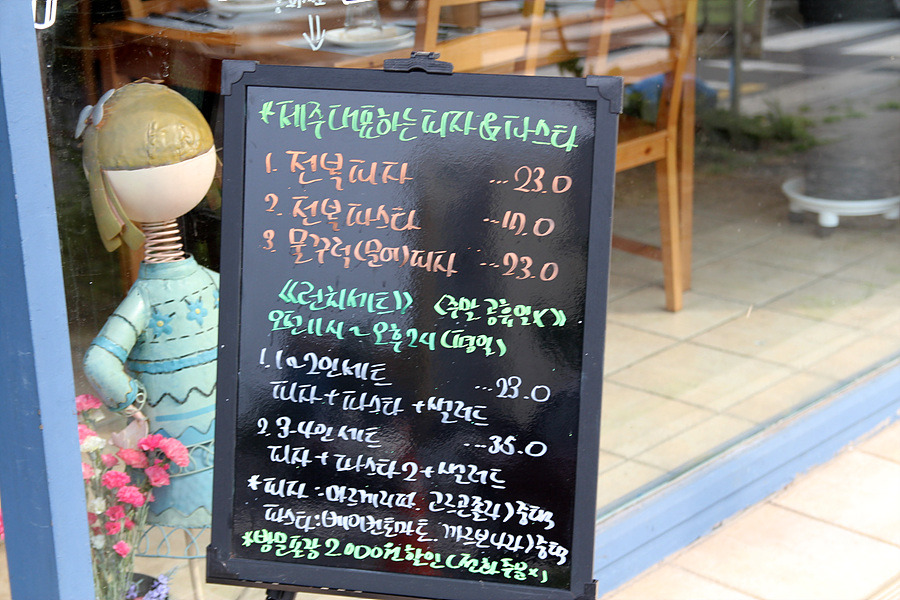 *제주 대표하는 피자&파스타
1. 전복피자 ...23.0
2. 전복파스타 ...17.0
3. 물꾸럭(문어)피자 ...23.0
《런치세트》 <주말 공휴일X>
오전11시~오후2시(평일)
1. 1~2인세트 ...23.0
피자+파스타+샐러드
2. 3-4인세트 ...35.0
피자+파스타2+샐러드
*피자:마르게리따, 고르곤졸라)중택
파스타:베이컨토마토, 까르보나라)중택
*방문포장 2000원 할인(전화주문x)